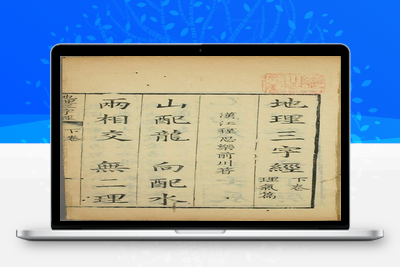 地理三字經 下卷
理氣篇
漢江程思樂前川著
山配龍 向配水
兩相交 無二理
下卷